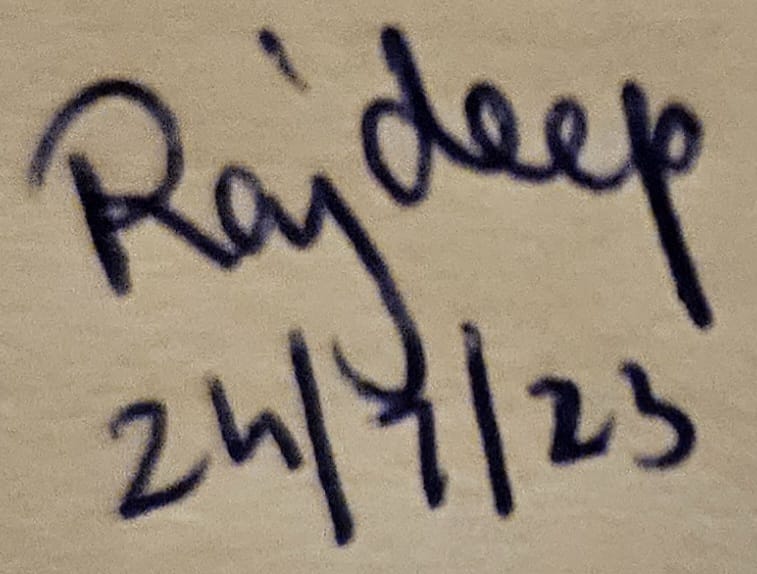 Rajdeep
24/7/23